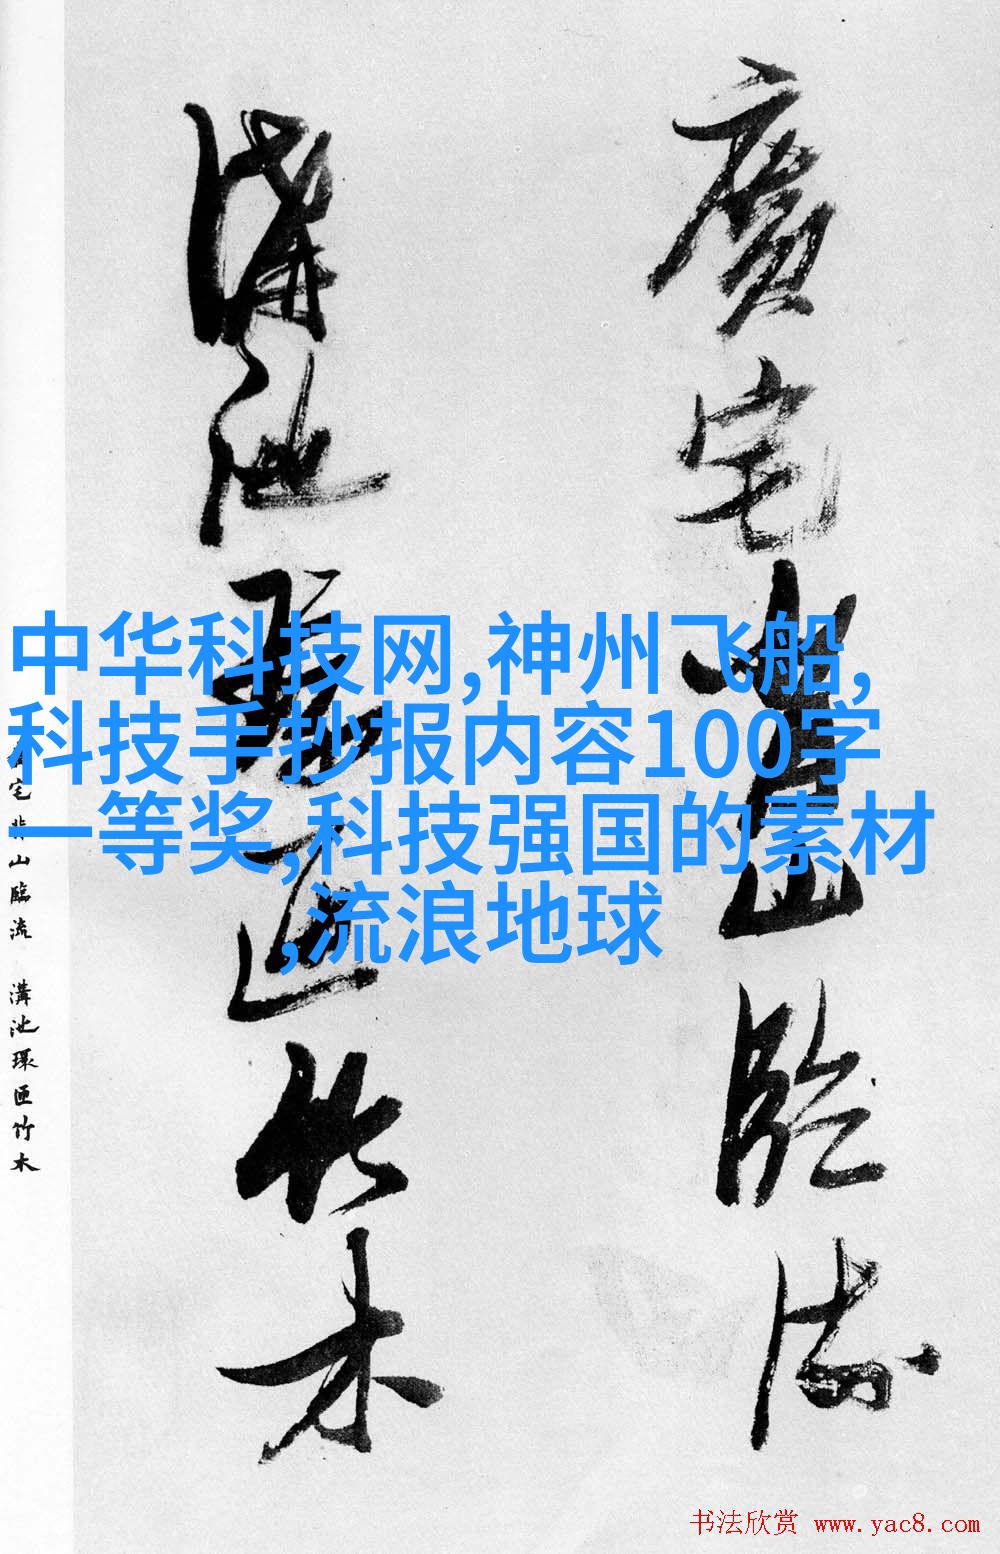 廣宅
山臨流
溝池環匝竹木
中华科技网,神州飞船,
科技手抄报内容100字
一等奖,科技强国的素材
,流浪地球
宅
山臨流
溝池環匝竹木
书法欣赏 www.yac8.com